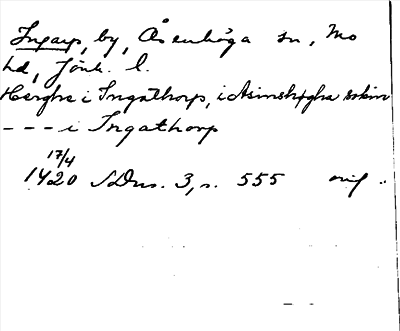 Ingarp, by, Åsenhöga sn, Mo
hd, Jönk. l.
Herghe i Ingathorp, i Asinshøgha sokin
--- i Ingathorp
17/4
1420 SDns. 3, s. 555 orig.